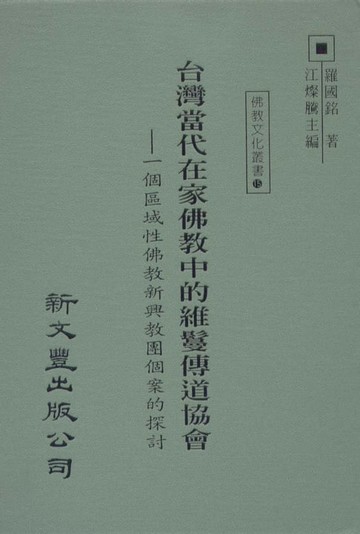 羅國銘 著
江燦騰主編
佛教文化叢書⓯
台灣當代在家佛教中的維鬘傳道協會
——一個區域性佛教新興教團個案的探討
新文豐出版公司